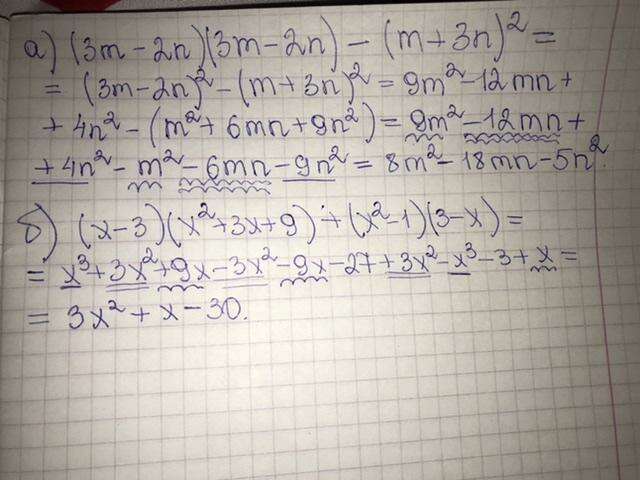 а) (3m-2n)(3m-2n) - (m+3n)² =
= (3m-2n)² - (m+3n)² = 9m² - 12mn +
+ 4n² - (m² + 6mn + 9n²) = 9m² - 12mn +
+ 4n² - m² - 6mn - 9n² = 8m² - 18mn - 5n².
б) (x-3)(x²+3x+9) + (x²-1)(3-x) =
= x³ + 3x² + 9x - 3x² - 9x - 27 + 3x² - x³ - 3 + x =
= 3x² + x - 30.